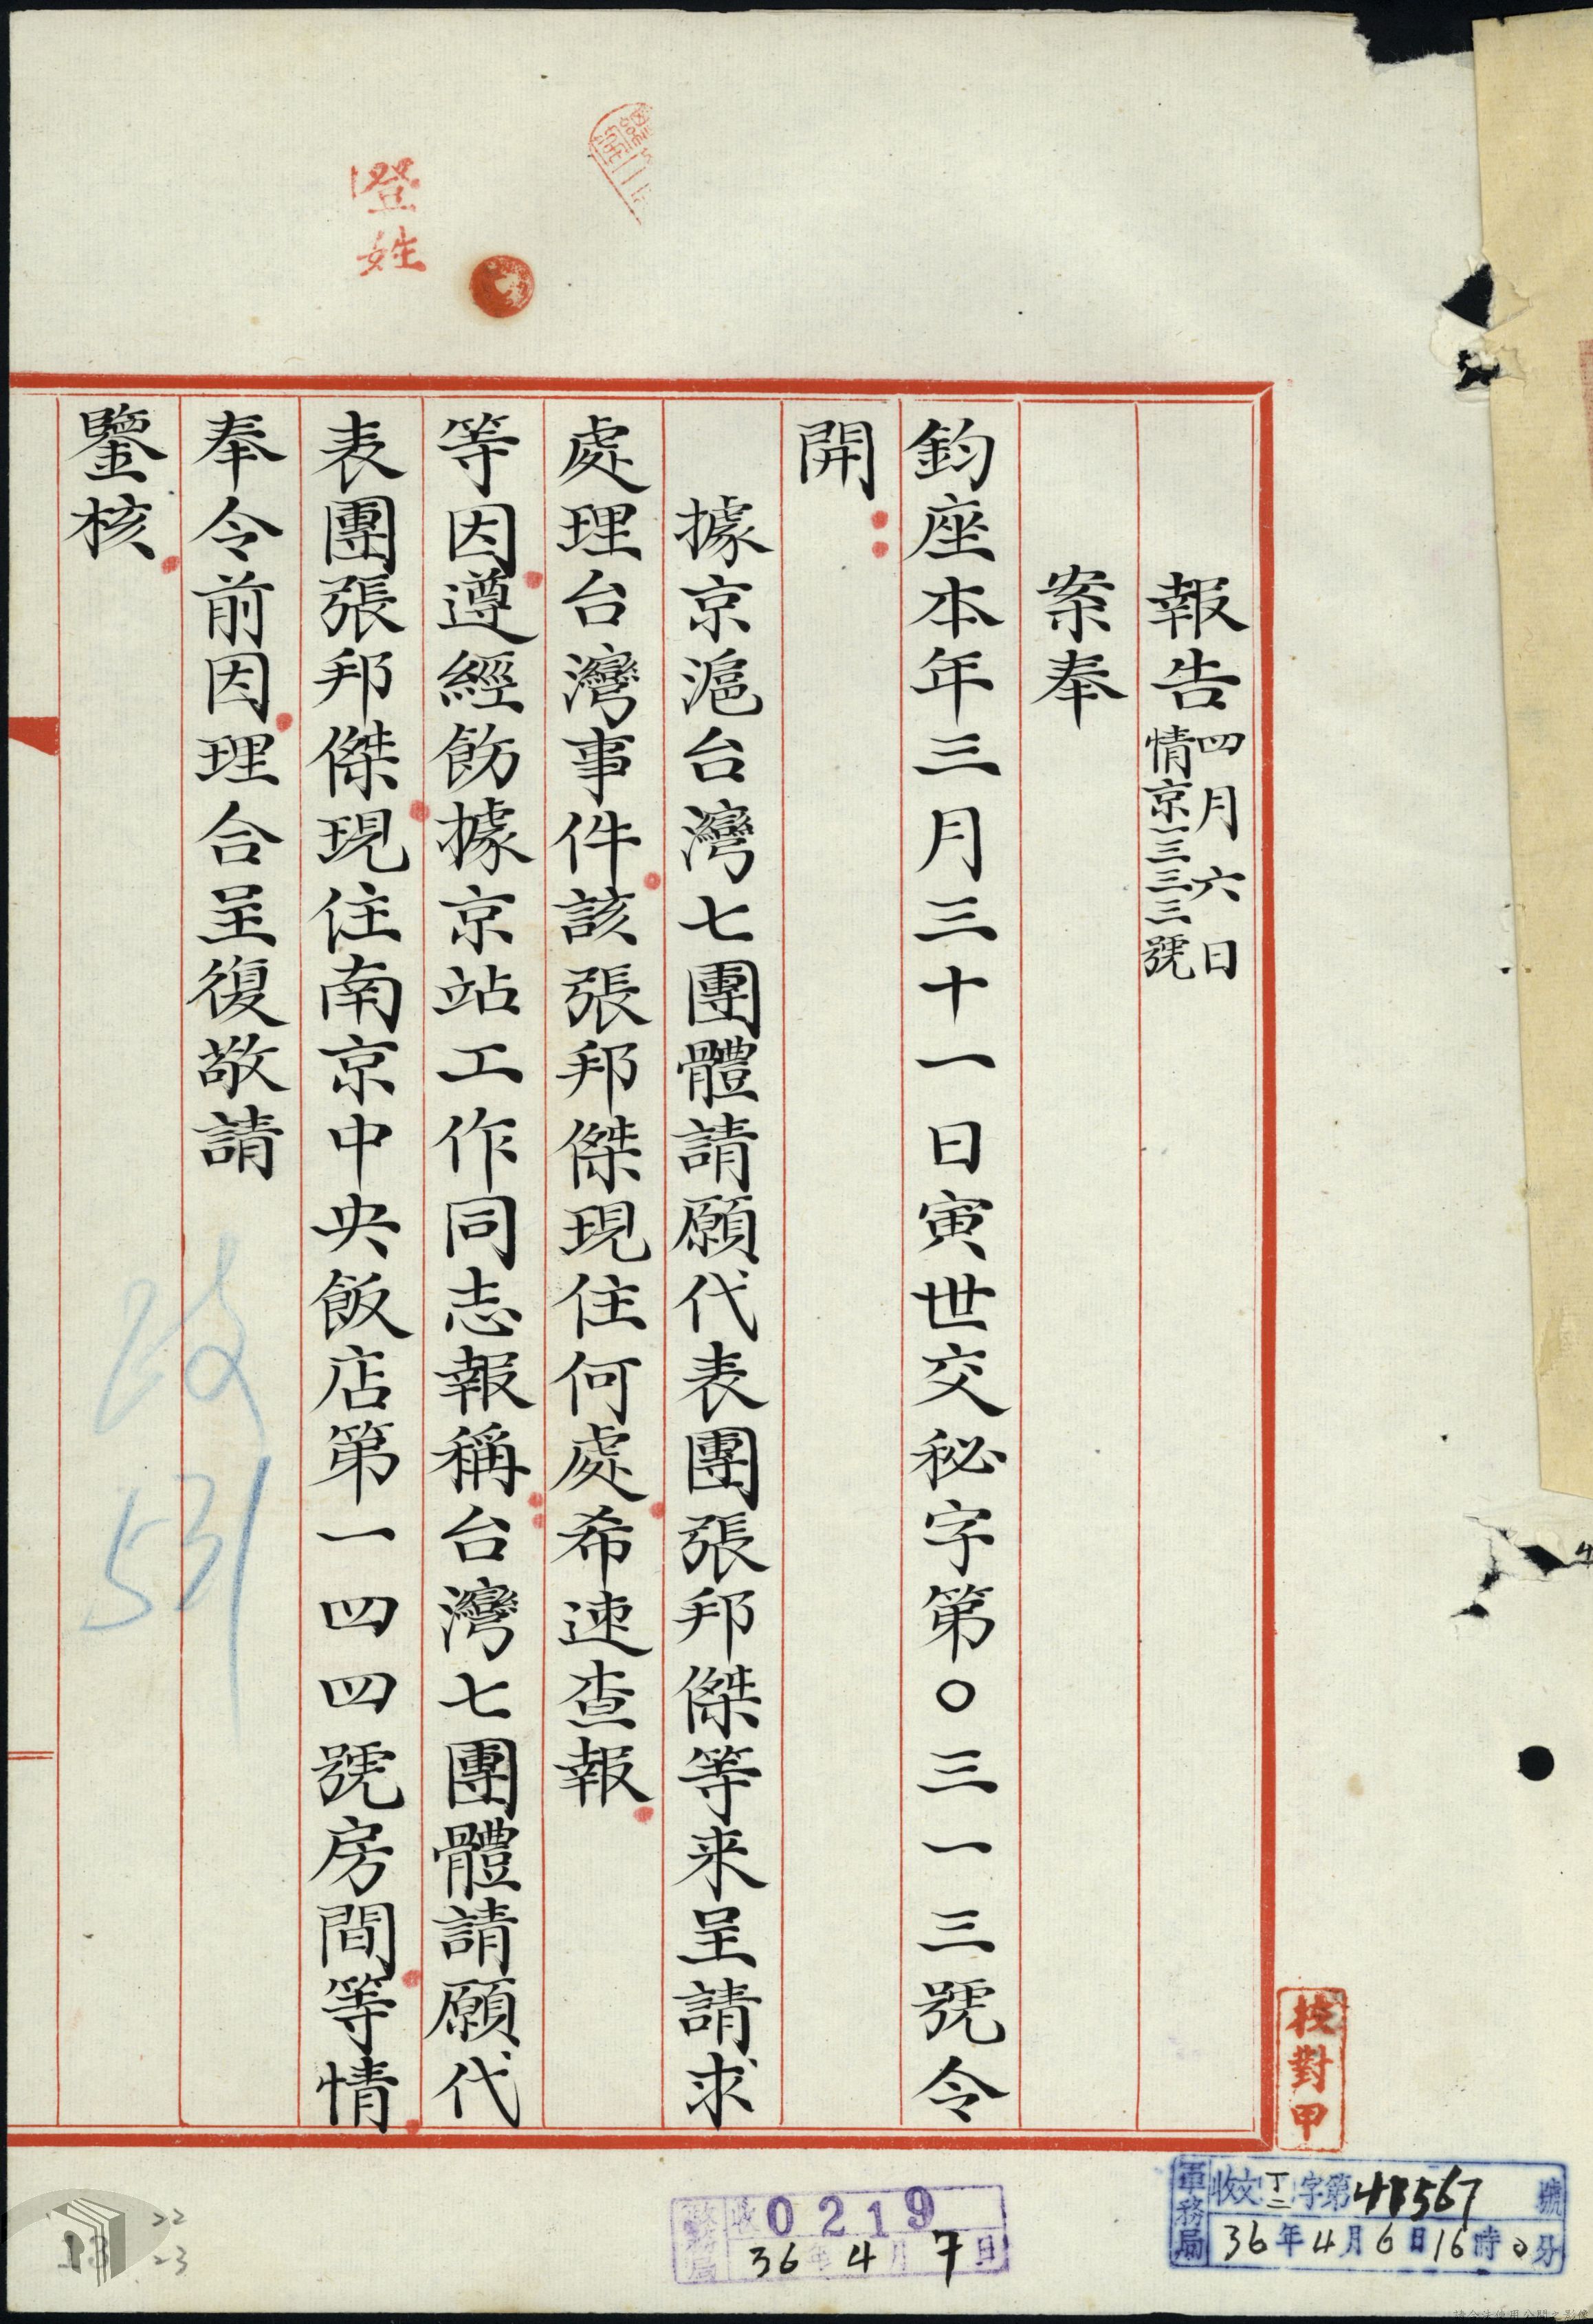 報告 四月六日
情京三三三號
案奉
鈞座本年三月三十一日寅世交秘字第〇三一三號令
開：
據京滬台灣七團體請願代表團張邦傑等來呈請求
處理台灣事件。該張邦傑現住何處。希速查報。
等因。遵經飭據京站工作同志報稱：台灣七團體請願代
表團張邦傑。現住南京中央飯店第一四四號房間。等情。
奉令前因。理合呈復敬請
鑒核。
校對甲
軍務局 收文 丁二 字第48567號
36年4月6日16時0分
政務局 收 0219
36年4月7日
政
531
登
姓
13
22
23